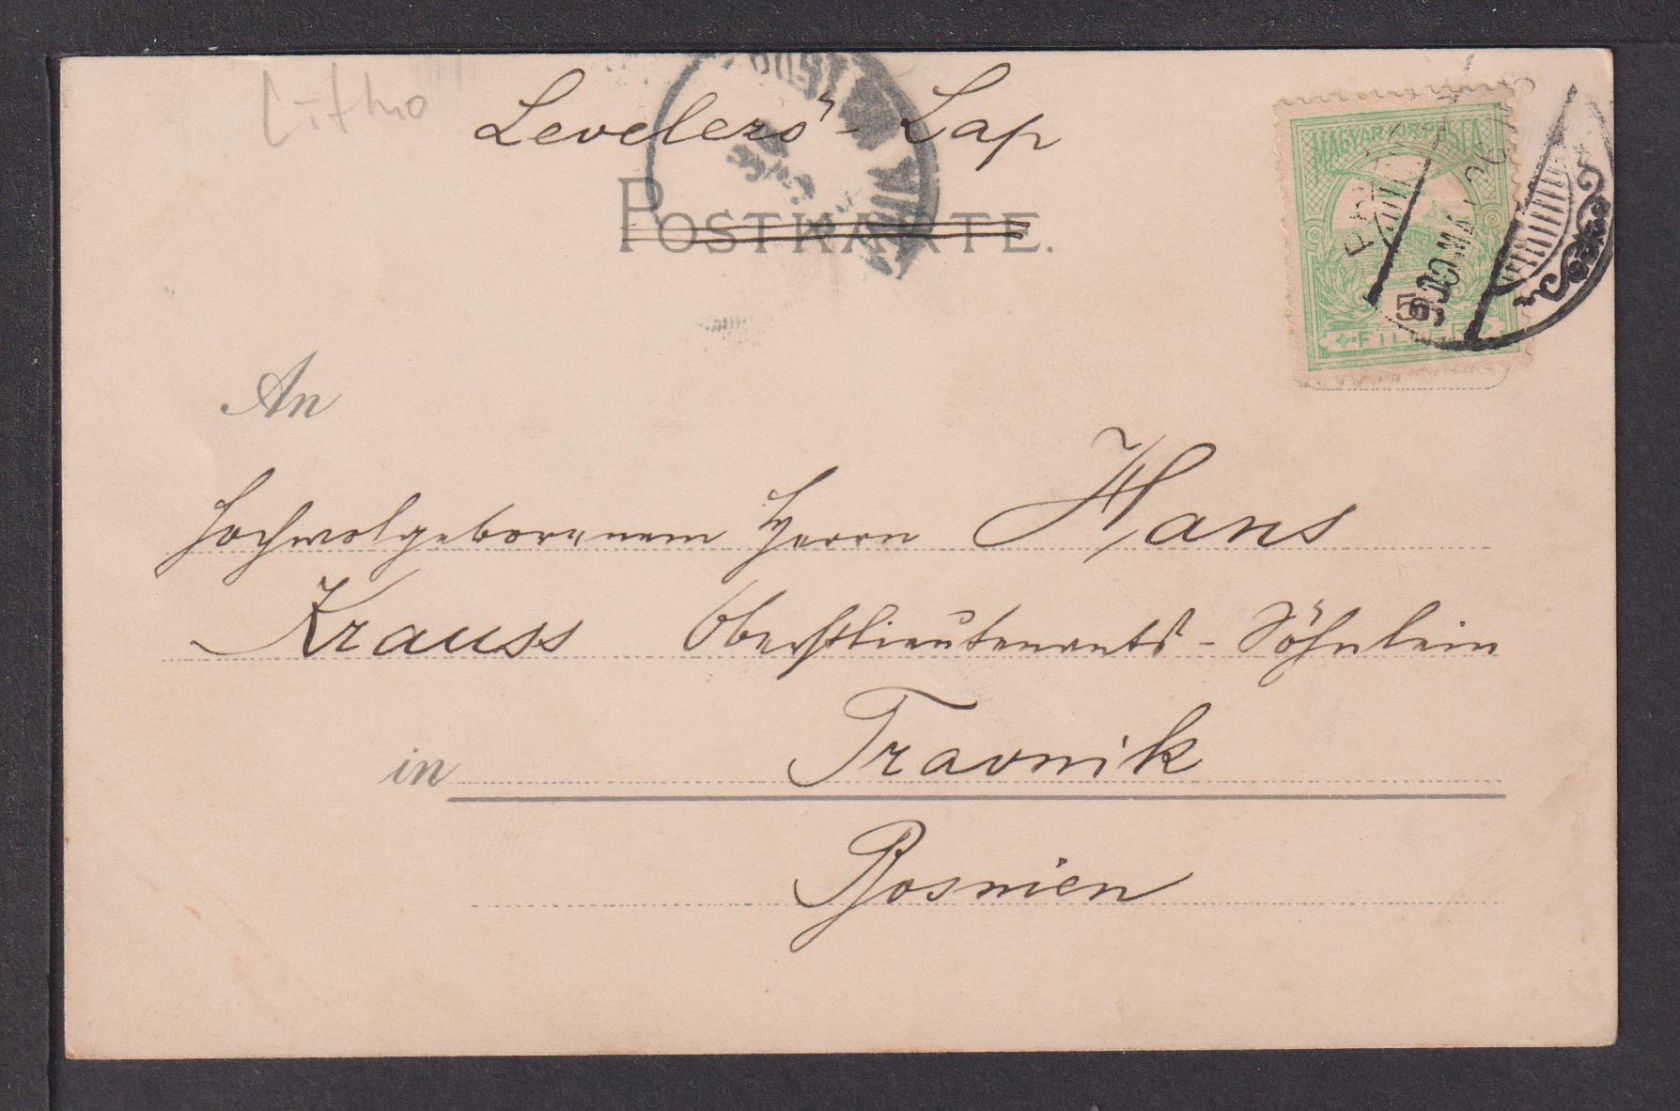 Litho
Levelező-Lap
POSTKARTE.
MAGYAR KIR. POSTA
900 MÁJ. 26
5
FILLÉR
An
Hochwolgeborenem Herrn Hans
Krauss Oberstlieutenants-Söhnlein
in Travnik
Bosnien